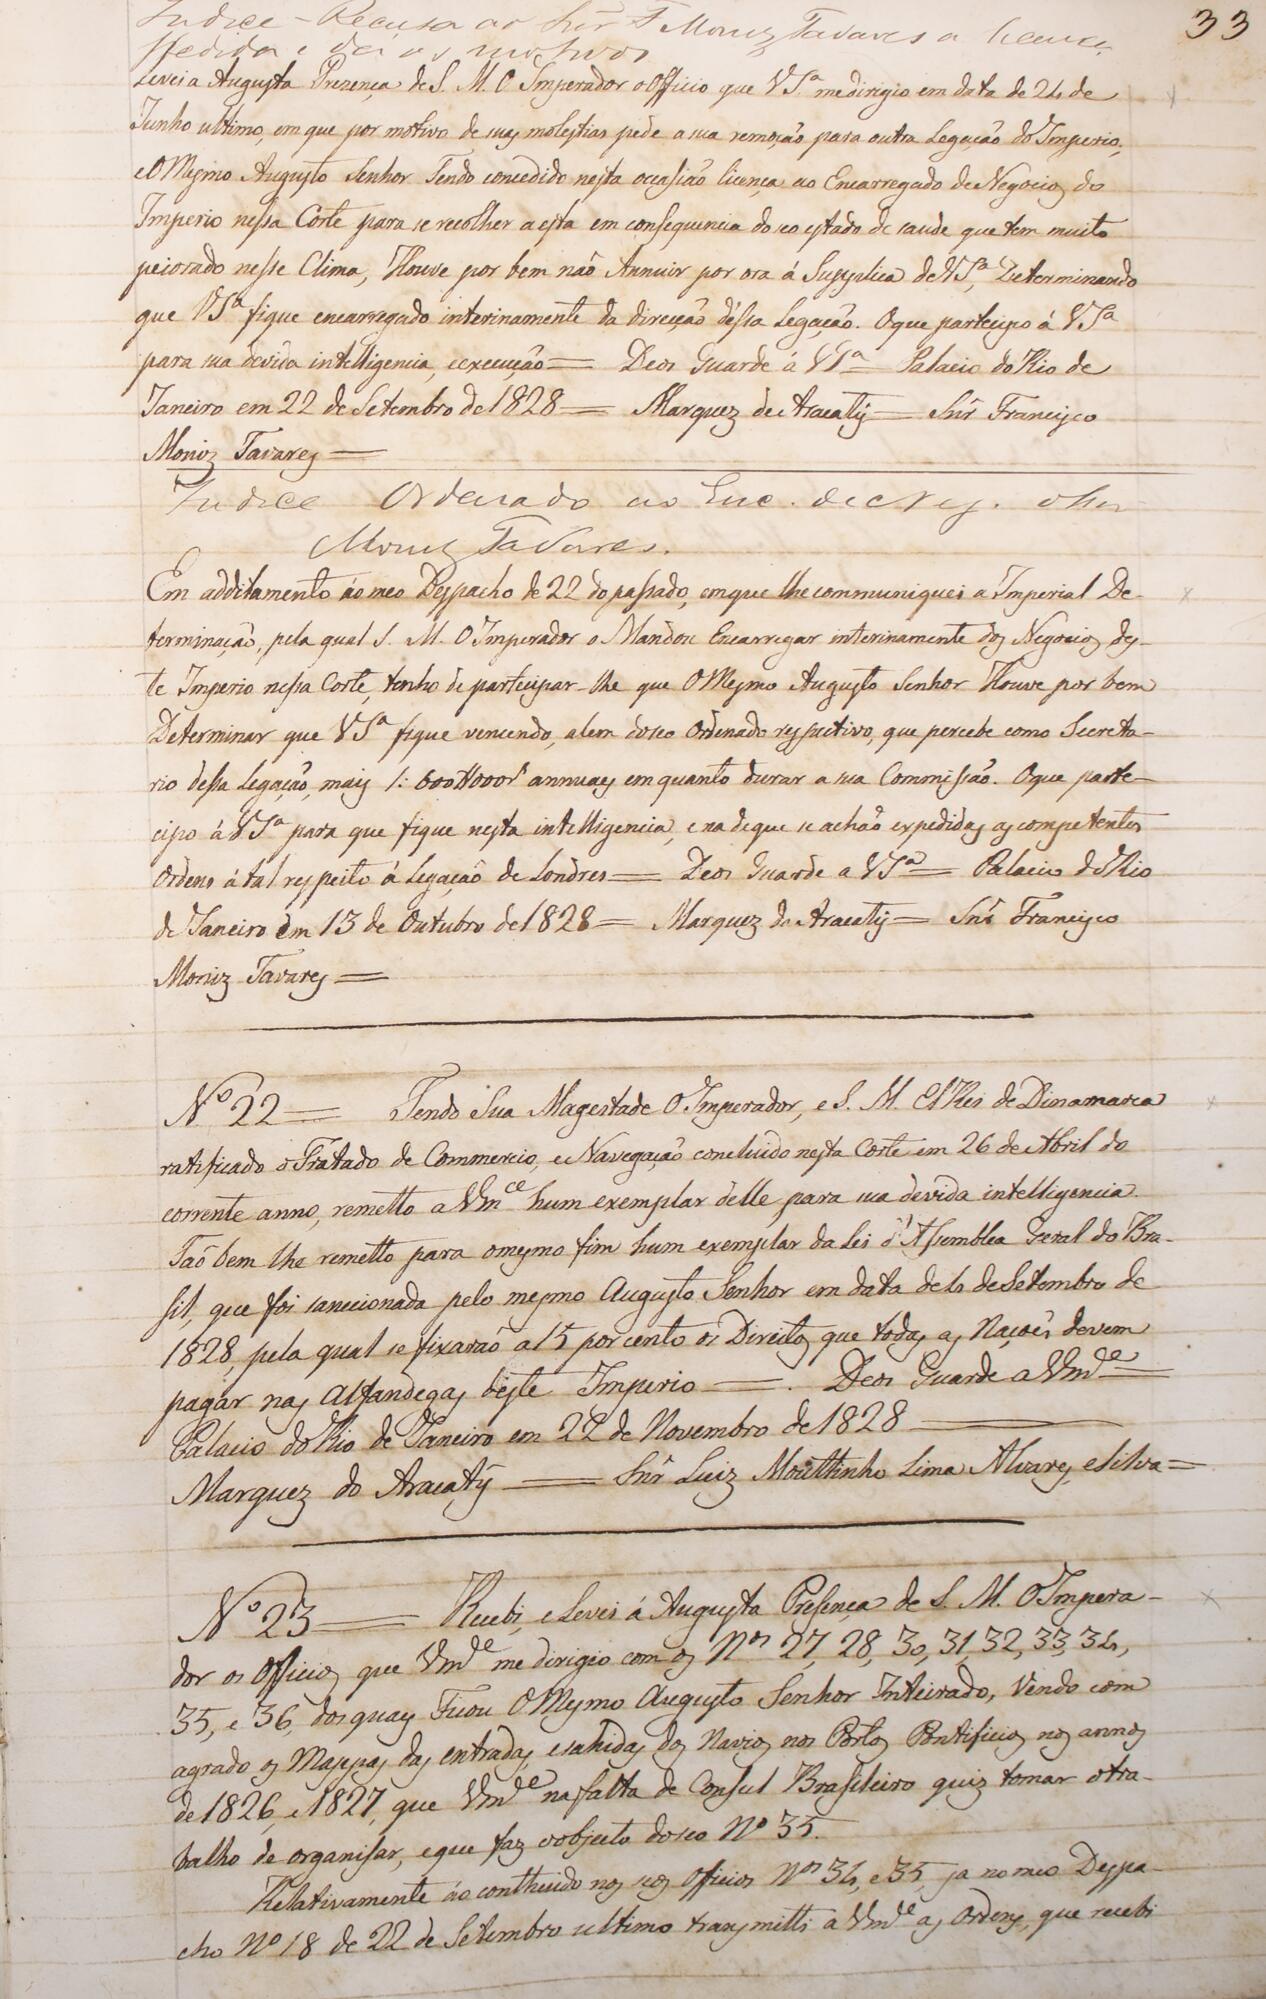 33
Indice - Recusa ao Snr. F Moniz Tavares a licença
pedida e da os motivos
Levei a Augusta Prezença de S. M. O Imperador o Officio que VSª. me dirigio em data de 24 de
Junho ultimo, em que por motivo de suas molestias pede a sua remoção para outra Legação do Imperio,
e O Mesmo Augusto Senhor Tendo concedido nesta occasião licença ao Encarregado de Negocios do
Imperio nessa Corte para se recolher a esta em consequencia do seo estado de saude que tem muito
peiorado nesse Clima, Houve por bem não Annuir por ora á Supplica de VSª, Determinando
que VSª fique encarregado interinamente da direcção d'essa Legação. O que partecipo á VSª
para sua devida intelligencia, e execução = Deos Guarde á VSª = Palacio do Rio de
Janeiro em 22 de Setembro de 1828 = Marquez de Aracaty = Snr. Francisco
Moniz Tavares =
Indice Ordenado ao Enc. de Neg. o Snr
Moniz Tavares.
Em additamento áo meo Despacho de 22 do passado, em que lhe communiquei a Imperial De-
terminação, pela qual S. M. O Imperador o Mandou Encarregar interinamente dos Negocios des-
te Imperio nessa Corte, tenho de partecipar-lhe que O Mesmo Augusto Senhor Houve por bem
Determinar que VSª fique vencendo, alem do seo Ordenado respectivo, que percebe como Secreta-
rio dessa Legação, mais 1:600$000 rs annuaes em quanto durar a sua Commissão. O que parte-
cipo á VSª para que fique nesta intelligencia, e na de que se achão expedidas as competentes
Ordens á tal respeito á Legação de Londres = Deos Guarde a VSª = Palacio do Rio
de Janeiro em 13 de Outubro de 1828 = Marquez do Aracaty = Snr. Francisco
Moniz Tavares =
Nº 22 = Tendo Sua Magestade O Imperador, e S. M. ElRei de Dinamarca
ratificado o Tratado de Commercio, e Navegação concluido nesta Corte em 26 de Abril do
corrente anno, remetto a Vmce hum exemplar delle para sua devida intelligencia.
Taõ bem lhe remetto para o mesmo fim hum exemplar da Lei d'Assemblea Geral do Bra-
sil, que foi sanccionada pelo mesmo Augusto Senhor em data de 4 de Setembro de
1828, pela qual se fixaraõ a 15 por cento os Direitos que todas as Nações devem
pagar nas Alfandegas deste Imperio = . Deos Guarde a Vmce =
Palacio do Rio de Janeiro em 22 de Novembro de 1828 =
Marquez do Aracaty = Snr. Luiz Mouttinho Lima Alvares e Silva =
Nº 23 = Recebi, e Levei á Augusta Presença de S. M. O Impera-
dor os Officios que Vmce me dirigio com os Nos 27, 28, 30, 31, 32, 33, 34,
35, e 36, dos quaes Ficou O Mesmo Augusto Senhor Inteirado, Vendo com
agrado os Mappas das entradas, e sahidas dos Navios nos Portos Pontificios nos annos
de 1826, e 1827, que Vmce na falta de Consul Brasileiro quiz tomar o tra-
balho de organisar, e que faz o objecto do seo Nº 35.
Relativamente áo contheudo nos seos Officios Nos 34, e 35, ja no meo Despa-
cho Nº 18 de 22 de Setembro ultimo transmitti a Vmce as Ordens, que recebi